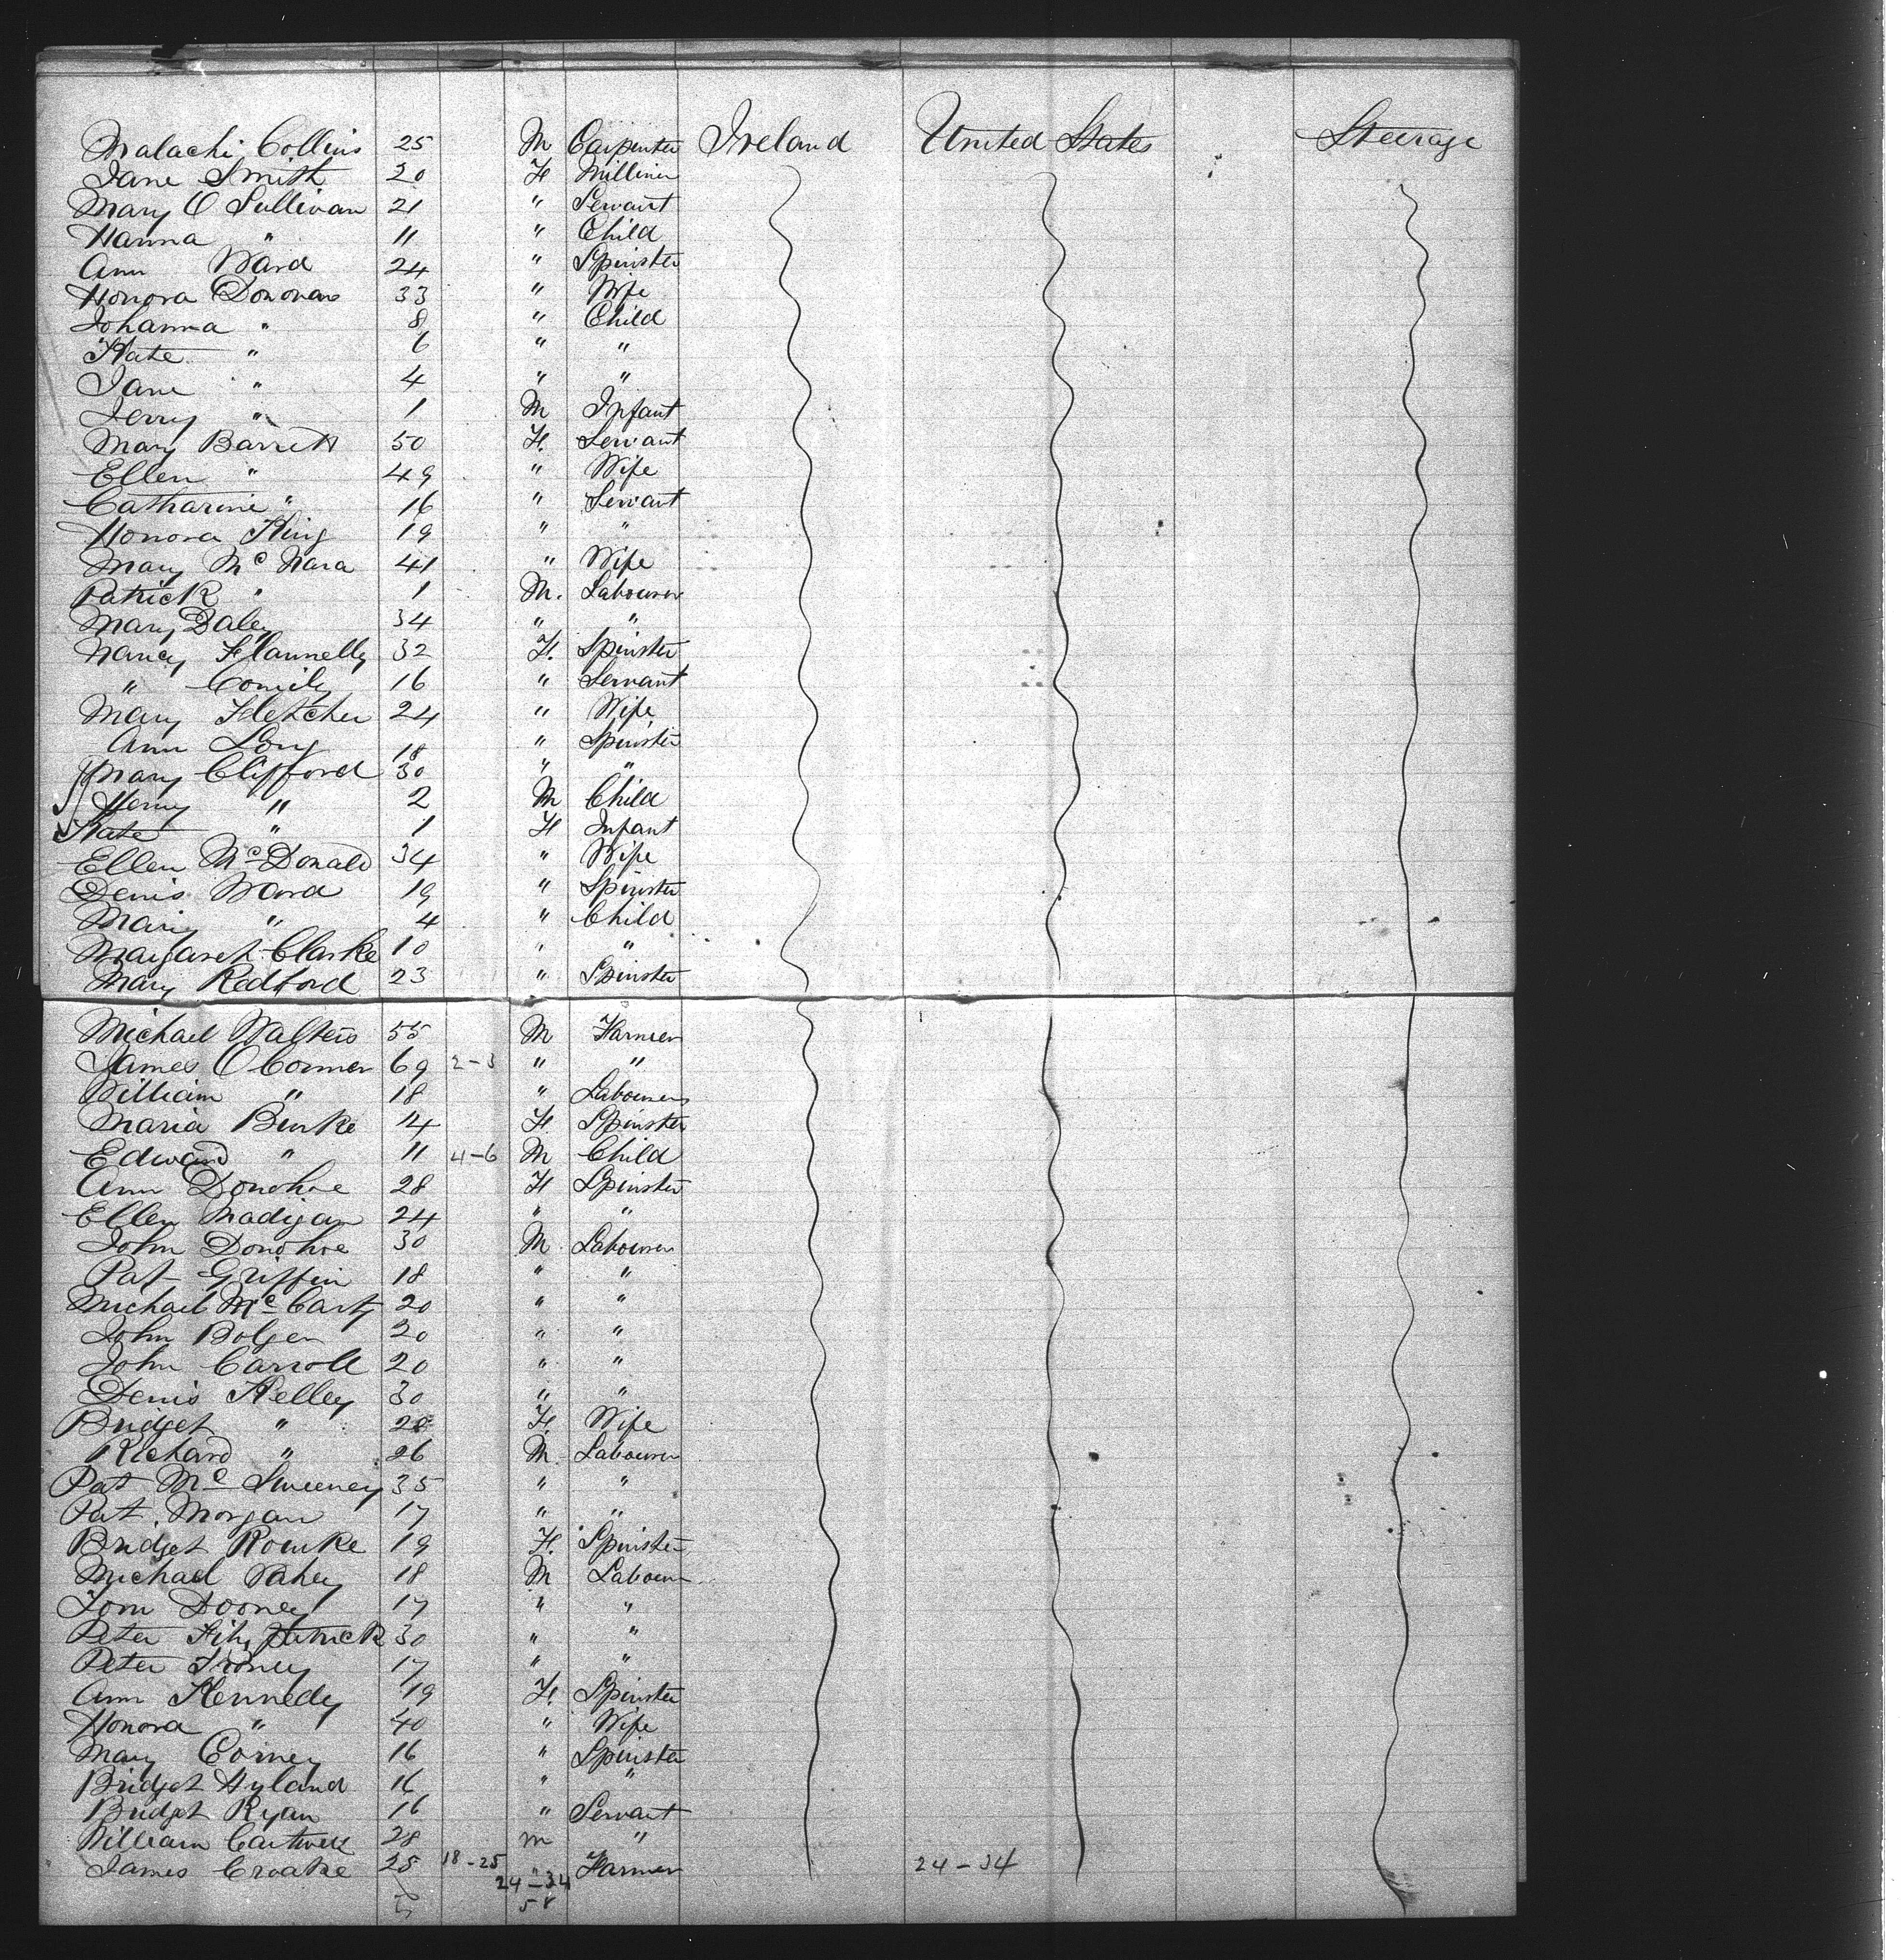 Malachi Collins 25 M Carpenter Ireland United States Steerage
Jane Smith 20 F Milliner
Mary O Sullivan 21 " Servant
Hanna " 11 " Child
Ann Ward 24 " Spinster
Honora Donovan 33 " Wife
Johanna " 8 " Child
Kate " 6 " "
Jane " 4 " "
Jerry " 1 M Infant
Mary Barrett 50 F. Servant
Ellen " 49 " Wife
Catharine " 16 " Servant
Honora King 19 " "
Mary Mc Nara 41 " Wife
Patrick " 1 M. Labourer
Mary Daley 34 " "
Nancy Flannelly 32 F. Spinster
" 16 " Servant
Mary Fletcher 24 " Wife
Ann Long 18 " Spinster
Mary Clifford 30 " "
Henry " 2 M Child
Kate " 1 F Infant
Ellen McDonald 34 " Wife
Denis Ward 19 " Spinster
Mary " 4 " Child
Margaret Clarke 10 " "
Mary Redford 23 " Spinster
Michael Walters 55 M Farmer
James O Connor 69 2-3 " "
William " 18 " Labourers
Maria Burke 14 F. Spinster
Edward " 11 4-6 M Child
Ann Donohoe 28 F Spinster
Ellen Madigan 24 " "
John Donohoe 30 M Labourer
Pat Griffin 18 " "
Michael McCarty 20 " "
John Bolger 20 " "
John Carroll 20 " "
Denis Kelley 30 " "
Bridget " F. Wife
Richard " 26 M. Labourer
Pat Mc Sweeney 35 " "
Pat. Morgan 17 " "
Bridget Rourke 19 F. Spinster
Michael Fahey 18 M Labour
Tom Dooney 17 " "
Peter Fitzpatrick 30 " "
Peter 17 " "
Ann Kennedy 19 F. Spinster
Honora " 40 " Wife
Mary Corney 16 " Spinster
Bridget Hyland 16 " "
Bridget Ryan 16 " Servant
William Cantwell 28 m "
James Croake 25 18-25 " Farmer 24-34
24-34
58